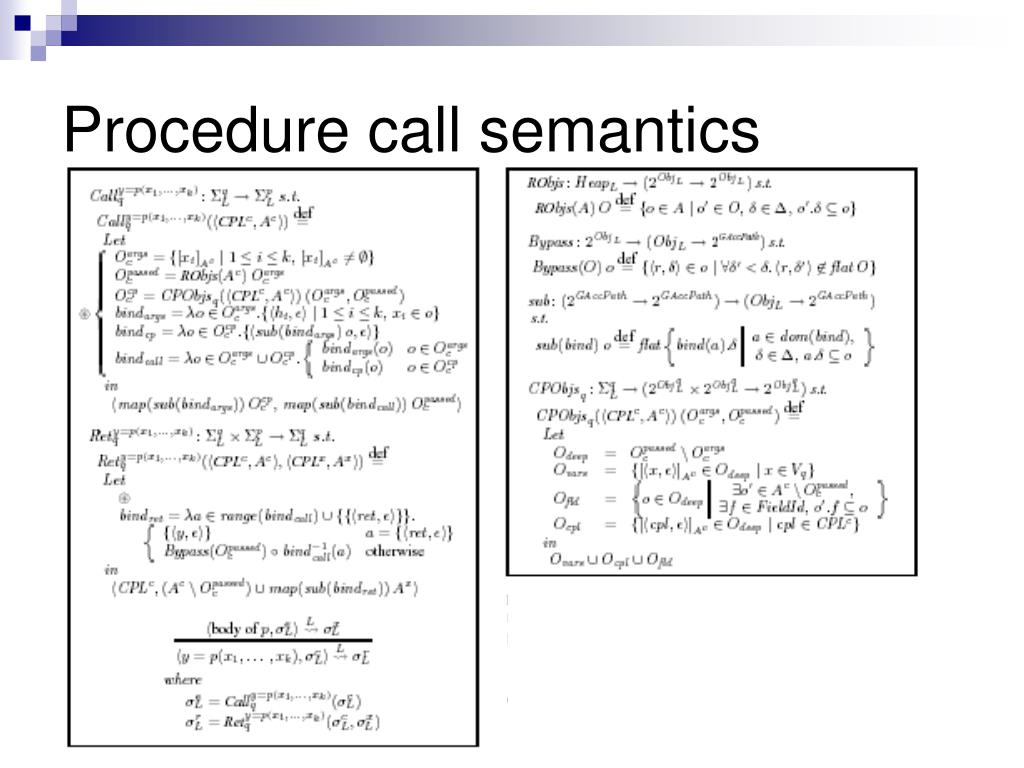 Procedure call semantics
Call_q^{y=p(x_1,…,x_k)} : Σ_L^q → Σ_L^p s.t.
Call_q^{y=p(x_1,…,x_k)}(⟨CPL^c, A^c⟩) def=
Let
O_c^{args} = {[x_i]_{A^c} | 1 ≤ i ≤ k, [x_i]_{A^c} ≠ ∅}
O_c^{passed} = RObjs(A^c) O_c^{args}
O_c^{cp} = CPObjs_q(⟨CPL^c, A^c⟩) (O_c^{args}, O_c^{passed})
⊛ { bind_{args} = λo ∈ O_c^{args}.{⟨h_i, ϵ⟩ | 1 ≤ i ≤ k, x_i ∈ o}
bind_{cp} = λo ∈ O_c^{cp}.{⟨sub(bind_{args}) o, ϵ⟩}
bind_{call} = λo ∈ O_c^{args} ∪ O_c^{cp}. { bind_{args}(o) o ∈ O_c^{args}
bind_{cp}(o) o ∈ O_c^{cp}
in
⟨map(sub(bind_{args})) O_c^{cp}, map(sub(bind_{call})) O_c^{passed}⟩
Ret_q^{y=p(x_1,…,x_k)} : Σ_L^q × Σ_L^p → Σ_L^q s.t.
Ret_q^{y=p(x_1,…,x_k)}(⟨CPL^c, A^c⟩, ⟨CPL^x, A^x⟩) def=
Let
⊛
bind_{ret} = λa ∈ range(bind_{call}) ∪ {{⟨ret, ϵ⟩}}.
{ {⟨y, ϵ⟩} a = {⟨ret, ϵ⟩}
Bypass(O_c^{passed}) ∘ bind_{call}^{-1}(a) otherwise
in
⟨CPL^c, (A^c \ O_c^{passed}) ∪ map(sub(bind_{ret})) A^x⟩
⟨body of p, σ_L^e⟩ ⇝^L σ_L^x
⟨y = p(x_1, …, x_k), σ_L^c⟩ ⇝^L σ_L^r
where
σ_L^e = Call_q^{y=p(x_1,…,x_k)}(σ_L^c)
σ_L^r = Ret_q^{y=p(x_1,…,x_k)}(σ_L^c, σ_L^x)
RObjs : Heap_L → (2^{Obj_L} → 2^{Obj_L}) s.t.
RObjs(A) O def= {o ∈ A | o' ∈ O, δ ∈ Δ, o'.δ ⊆ o}
Bypass : 2^{Obj_L} → (Obj_L → 2^{GAccPath}) s.t.
Bypass(O) o def= {⟨r, δ⟩ ∈ o | ∀δ' < δ. ⟨r, δ'⟩ ∉ flat O}
sub : (2^{GAccPath} → 2^{GAccPath}) → (Obj_L → 2^{GAccPath})
s.t.
sub(bind) o def= flat { bind(a).δ | a ∈ dom(bind),
δ ∈ Δ, a.δ ⊆ o }
CPObjs_q : Σ_L^q → (2^{Obj_L^q} × 2^{Obj_L^q} → 2^{Obj_L^q}) s.t.
CPObjs_q(⟨CPL^c, A^c⟩) (O_c^{args}, O_c^{passed}) def=
Let
O_{deep} = O_c^{passed} \ O_c^{args}
O_{vars} = {[⟨x, ϵ⟩]_{A^c} ∈ O_{deep} | x ∈ V_q}
O_{fld} = { o ∈ O_{deep} | ∃o' ∈ A^c \ O_c^{passed},
∃f ∈ FieldId, o'.f ⊆ o }
O_{cpl} = {[⟨cpl, ϵ⟩]_{A^c} ∈ O_{deep} | cpl ∈ CPL^c}
in
O_{vars} ∪ O_{cpl} ∪ O_{fld}